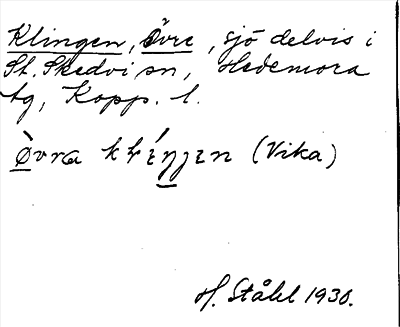 Klingen, Övre, sjö delvis i
St. Skedvi sn, Hedemora
tg, Kopp. l.
Òvra kḷíŋɟen (Vika)
H. Ståhl 1930.